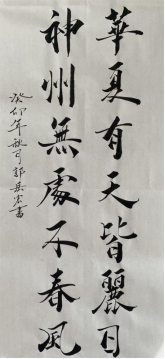 華夏有天皆麗日
神州無處不春風
癸卯年秋可郭岳宗書